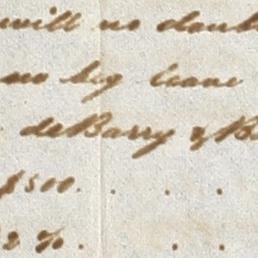 will no doubt
no beg leave
deBarry & B
$500. . . .
2 %. . .